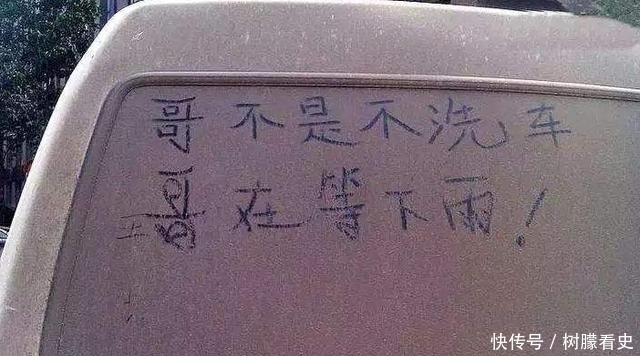 哥不是不洗车
哥在等下雨！
快传号/树朦看史